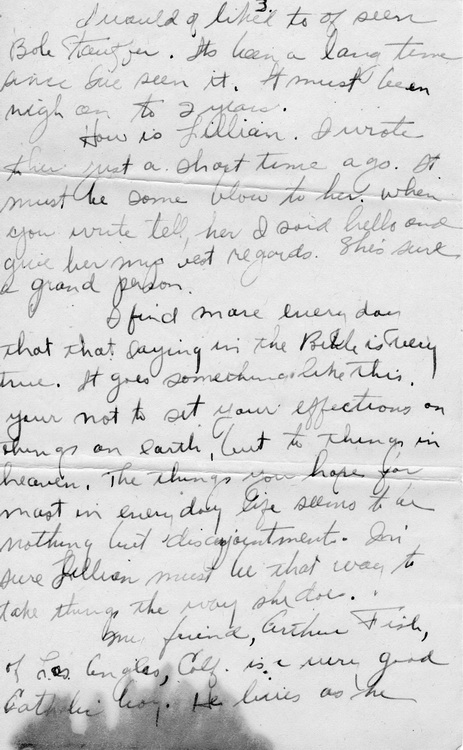 3
I would of liked to of seen
Bob Stauffer. Its been a long time
since Ive seen it. It must been
nigh on to 2 years.
How is Lillian. I wrote
her just a short time ago. It
must be some blow to her. when
you write tell, her I said hello and
give her my est regards. She's sure
a grand person.
I find more every day
that that saying in the Bible is very
true. It goes something like this.
your not to set your effections on
things on earth, but to things in
heaven. The things you hope for
most in every day life seems to be
nothing but disapointments. Im
sure Lillian must be that way to
take things the way she doe.
My friend, Arthur Fish,
of Los Angles, Calf. is a very good
Catholic boy. He lives as he